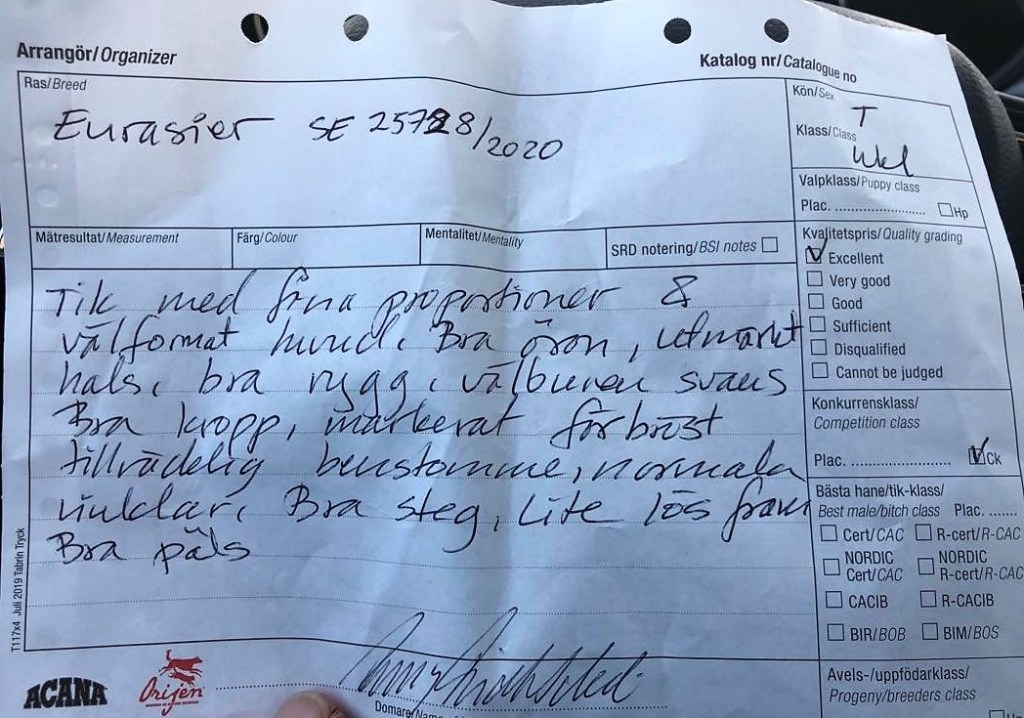 Arrangör/Organizer
Katalog nr/Catalogue no
Ras/Breed
Eurasier SE 25728/2020
Kön/Sex T
Klass/Class Ukl
Valpklass/Puppy class
Plac. .......................... Hp
Mätresultat/Measurement
Färg/Colour
Mentalitet/Mentality
SRD notering/BSI notes
Kvalitetspris/Quality grading
Excellent
Very good
Good
Sufficient
Disqualified
Cannot be judged
Tik med fina proportioner &
välformat huvud. Bra öron, utmärkt
hals, bra rygg, välburen svans
Bra kropp, markerat förbröst
tillräcklig benstomme, normala
vinklar, Bra steg, Lite lös fram
Bra päls
Konkurrensklass/
Competition class
Plac. .......................... Ck
Bästa hane/tik-klass/
Best male/bitch class Plac. ......
Cert/CAC R-cert/R-CAC
NORDIC Cert/CAC NORDIC R-cert/R-CAC
CACIB R-CACIB
BIR/BOB BIM/BOS
Avels-/uppfödarklass/
Progeny/breeders class
T117x4 Juli 2019 Tabrin Tryck
ACANA
Orijen